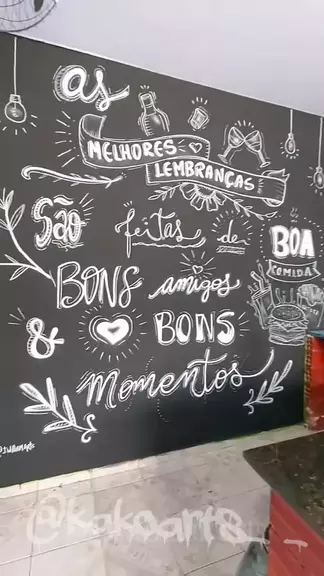 as
MELHORES
LEMBRANÇAS
São feitas de
BONS amigos
& BONS
momentos
BOA
COMIDA
@kakoarts_